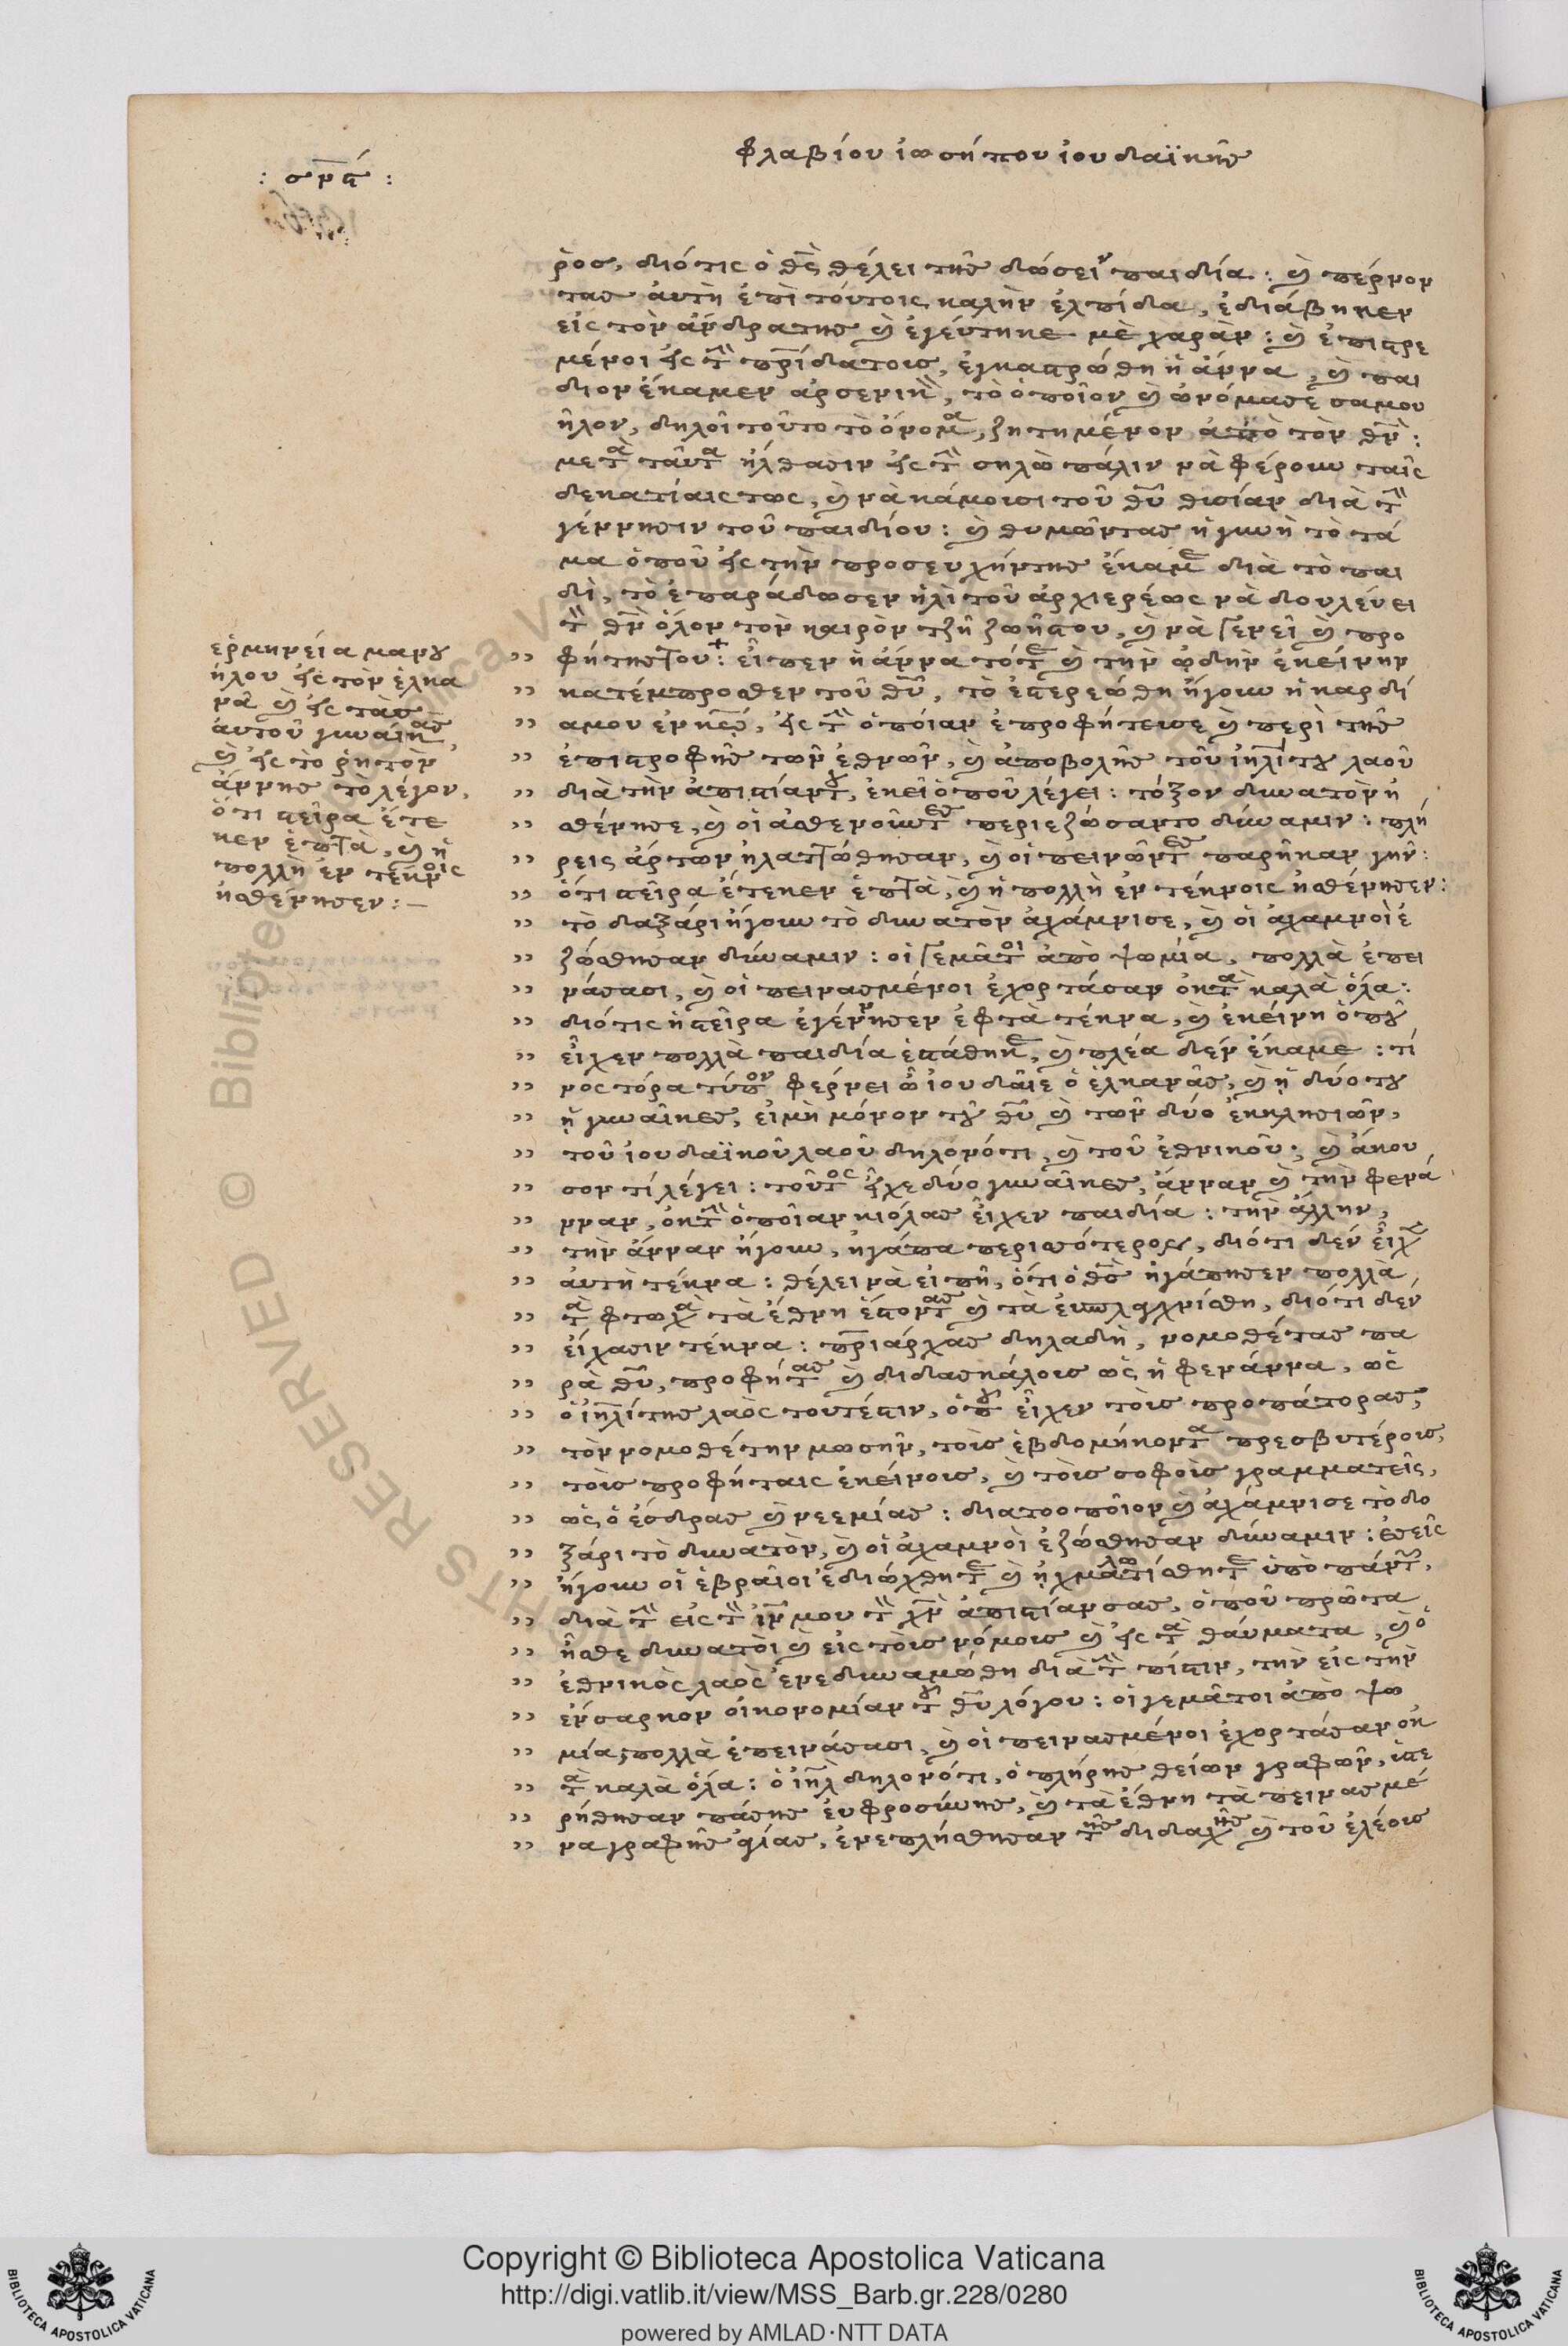 φλαβίου ἰωσήπου ἰουδαϊκῆς
: σνϛ :
ρὸσ, διότις ὁ θς θέλει τῆς δώσειν παιδία : ϗ πέρνον
τας ἀυτὴ ἐπὶ τόυτοις καλὴν ἐλπίδα, ἐδιάβηκεν
εἰς τὸν ἄνδρα της ϗ ἐγέυτηκε μὲ χαρὰν : ϗ ἐπιστρε
μένοι εἰς τ πρίδα τοισ, ἐγκαστρώθη ἡ ἄννα, ϗ παι
δὶον ἔκαμεν ἀρσενικ, τὸ ὁποῖον ϗ ὠνόμασε σαμου
ῆλον, δηλοῖ τοῦτο τὸ ὄνομα, ζητημένον ἀπὸ τὸν θν :
μετὰ ταῦτα ἦλθασιν εἰς τ σηλὼ πάλιν νὰ φέρουν ταῖς
δεκατίαις τως, ϗ νὰ κάμουσι τοῦ θῦ θυσίαν διὰ τ
γέννησιν τοῦ παιδίου : ϗ θυμῶντας ἡ γυνὴ τὸ τά
μα ὁποῦ εἰς τὴν προσευχήν της ἔκαμε διὰ τὸ παι
δὶ, τὸ ἐπαράδωσεν ἠλὶ τοῦ ἀρχιερέως νὰ δουλέυει
τ θν ὅλον τὸν καιρὸν τζῆ ζωῆς του, ϗ νὰ γενεῖ ϗ προ
φήτης του : εἶπεν ἡ ἄννα τότε ϗ τὴν ὠδὴν ἐκείνην
κατέμπροσθεν τοῦ θῦ, τὸ ἐστερεώθη ἤγουν ἡ καρδί
α μου ἐν κω, εἰς τ ὁποίαν ἐπροφήτευσε ϗ περὶ τῆς
ἐπιστροφῆς τῶν ἐθνῶν, ϗ ἀποβολῆς τοῦ ἰηλίτου λαοῦ
διὰ τὴν ἀπιστίαν του, ἐκεῖ ὁποῦ λέγει : τόξον δυνατὸν ἠ
σθένησε, ϗ οἱ ἀσθενοῦντες περιεζώσαντο δύναμιν : πλή
ρεις ἄρτων ἠλαττώθησαν, ϗ οἱ πεινῶντες παρῆκαν γῆν :
ὅτι στεῖρα ἔτεκεν ἑπτὰ, ϗ ἡ πολλὴ ἐν τέκνοις ἠσθένησεν :
τὸ δαξάρι ἤγουν τὸ δυνατὸν ἀχάμνισε, ϗ οἱ ἀχαμνοὶ ἐ
ζώσθησαν δύναμιν : οἱ γεμάτοι ἀπὸ ψωμία, πολλὰ ἐπει
νάσασι, ϗ οἱ πεινασμένοι ἐχορτάσαν ὀκ τὰ καλὰ ὅλα :
διότις ἡ στεῖρα ἐγέννησεν ἑφτὰ τέκνα, ϗ ἐκείνη ὁποῦ
εἶχεν πολλὰ παιδία ἐστάθηκε, ϗ πλέα δὲν ἔκαμε : τί
νος τόρα τύπον φέρνει ὦ ἰουδαῖε ὁ ἑλκανᾶς, ϗ ᾑ δύο του
ᾑ γυναῖκες, εἰμὴ μόνον τοῦ θῦ ϗ τῶν δύο ἐκκλησιῶν,
τοῦ ἰουδαϊκοῦ λαοῦ δηλονότι, ϗ τοῦ ἐθνικοῦ : ϗ ἄκου
σον τί λέγει : τοῦτος εἶχε δύο γυναῖκες, ἄνναν ϗ τὴν φενά
νναν, ὀκ τ ὁποῖαν κιόλας εἶχεν παιδία : τὴν ἄλλην,
τὴν ἄνναν ἤγουν, ἠγάπα περισσότερον, διότι δὲν εἶχε
ἀυτὴ τέκνα : θέλει νὰ εἰπῆ, ὅτι ὁ θς ἠγάπησεν πολλὰ
τὰ φτωχὰ τὰ ἔθνη ἔστοντας ϗ τὰ ἐσπλαχνίσθη, διότι δὲν
εἴχασιν τέκνα : πριάρχας δηλαδὴ, νομοθέτας πα
ρὰ θῦ, προφήτας ϗ διδασκάλους ὡς ἡ φενάννα, ὡς
ὁ ἰηλίτης λαὸς τουτέστιν, ὁποῦ εἶχεν τοὺς προπάτορας,
τὸν νομοθέτην μωσῆν, τοὺς ἑβδομήκοντα πρεσβυτέρους,
τοὺς προφήταις ἐκείνους, ϗ τοὺς σοφοὺς γραμματεῖς,
ὡς ὁ ἔσδρας ϗ νεεμίας : διατοοποῖον ϗ ἀχάμνισε τὸ δο
ξάρι τὸ δυνατὸν, ϗ οἱ ἀχαμνοὶ ἐζώσθησαν δύναμιν : ἐσεῖς
ἤγουν οἱ ἑβραῖοι ἐδιώχθητε ϗ ᾐχμαλωτίσθητε ὑπὸ πάντ,
διὰ τ εἰς τ ἰν μου τ χν ἀπιστίαν σας, ὁποῦ πρῶτα
ἦσθε δυνατοὶ ϗ εἰς τοὺς νόμους ϗ εἰς τὰ θάυματα, ϗ ὁ
ἐθνικὸς λαὸς ἐνεδυναμώθη διὰ τ πίστιν, τὴν εἰς τὴν
ἔνσαρκον οἰκονομίαν τοῦ θῦ λόγου : οἱ γεμᾶτοι ἀπὸ ψω
μία, πολλὰ ἐπεινάσασι, ϗ οἱ πεινασμένοι ἐχορτάσαν ὀκ
τὰ καλὰ ὅλα : ὁ ἰηλ δηλονότι, ὁ πλήρης θείων γραφῶν, ὑστε
ρήθησαν πάσης ἐυφροσύνης, ϗ τὰ ἔθνη τὰ πεινασμέ
να γραφῆς ἁγίας, ἐνεπλήσθησαν τῆς διδαχῆς ϗ τοῦ ἐλέους
ἑρμηνεία μανου
ήλου εἰς τὸν ἑλκα
νᾶ ϗ εἰς τὰς
ἀυτοῦ γυναίκας,
ϗ εἰς τὸ ῥητὸν
ἄννης τὸ λέγον,
ὅτι στεῖρα ἔτε
κεν ἑπτὰ, ϗ ἡ
πολλὴ ἐν τέκνοις
ἠσθένησεν : —
Copyright © Biblioteca Apostolica Vaticana
http://digi.vatlib.it/view/MSS_Barb.gr.228/0280
powered by AMLAD·NTT DATA
BIBLIOTECA APOSTOLICA VATICANA
BIBLIOTECA APOSTOLICA VATICANA